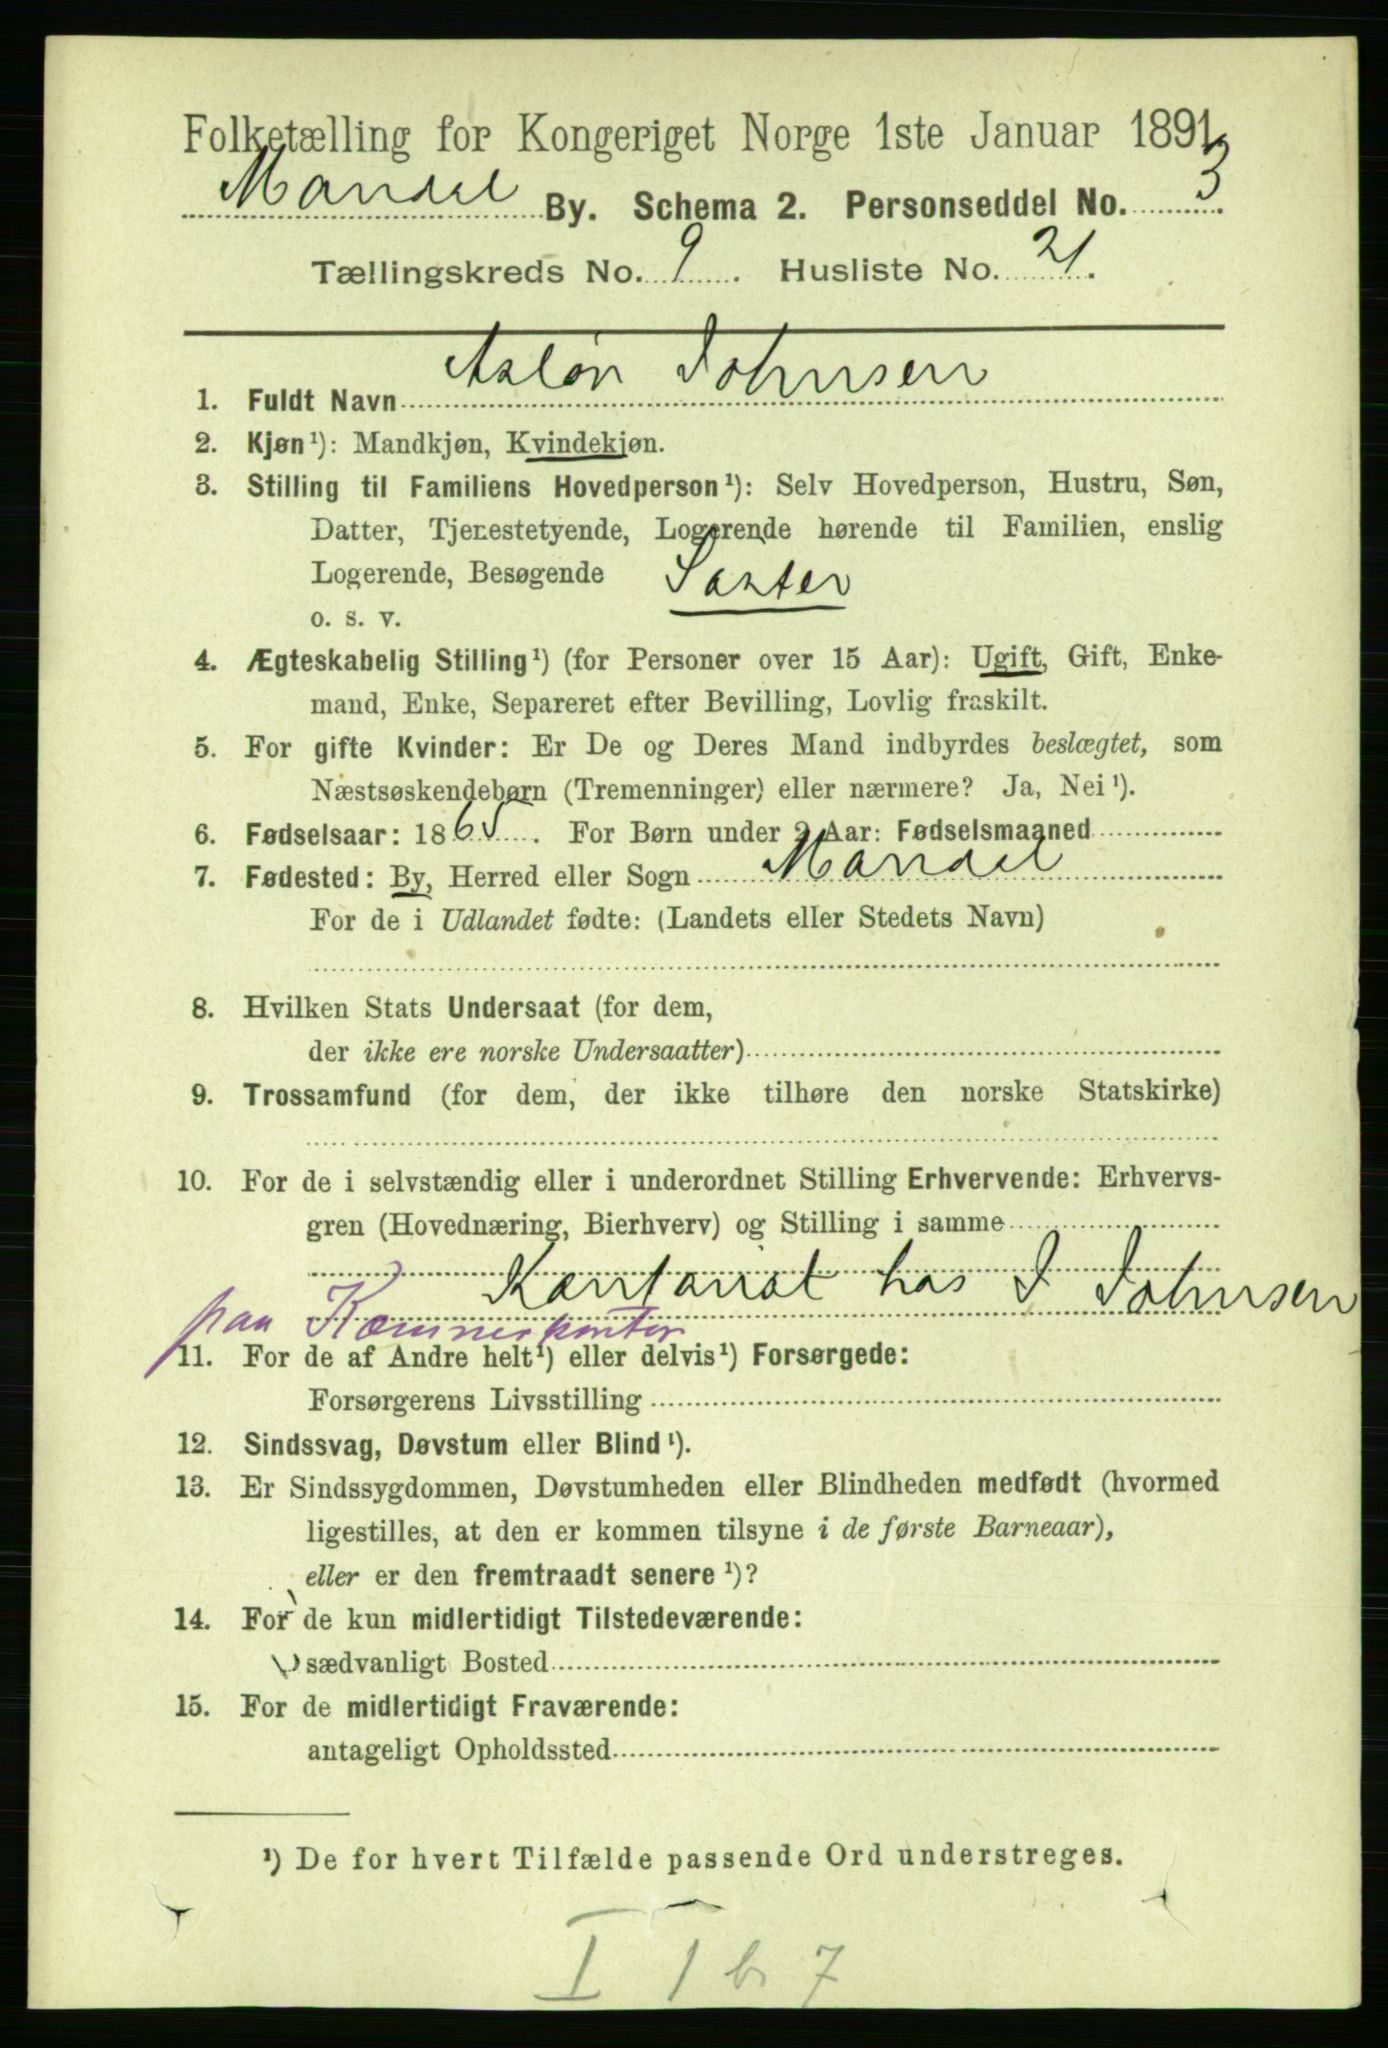 Folketælling for Kongeriget Norge 1ste Januar 1891.
Mandal By. Schema 2. Personseddel No. 3.
Tællingskreds No. 9. Husliste No. 21.
1. Fuldt Navn Aslön Johnsen
2. Kjøn¹): Mandkjøn, Kvindekjøn.
3. Stilling til Familiens Hovedperson¹): Selv Hovedperson, Hustru, Søn,
Datter, Tjenestetyende, Logerende hørende til Familien, enslig
Logerende, Besøgende
o. s. v.
4. Ægteskabelig Stilling¹) (for Personer over 15 Aar): Ugift, Gift, Enke-
mand, Enke, Separeret efter Bevilling, Lovlig fraskilt.
5. For gifte Kvinder: Er De og Deres Mand indbyrdes beslægtet, som
Næstsøskendebørn (Tremenninger) eller nærmere? Ja, Nei¹).
6. Fødselsaar: 1865. For Børn under 2 Aar: Fødselsmaaned
7. Fødested: By, Herred eller Sogn Mandal
For de i Udlandet fødte: (Landets eller Stedets Navn)
8. Hvilken Stats Undersaat (for dem,
der ikke ere norske Undersaatter)
9. Trossamfund (for dem, der ikke tilhøre den norske Statskirke)
10. For de i selvstændig eller i underordnet Stilling Erhvervende: Erhvervs-
gren (Hovednæring, Bierhverv) og Stilling i samme
Kontorist hos J Johnsen
paa Kæmnerkontor
11. For de af Andre helt¹) eller delvis¹) Forsørgede:
Forsørgerens Livsstilling
12. Sindssvag, Døvstum eller Blind¹).
13. Er Sindssygdommen, Døvstumheden eller Blindheden medfødt (hvormed
ligestilles, at den er kommen tilsyne i de første Barneaar),
eller er den fremtraadt senere¹)?
14. For de kun midlertidigt Tilstedeværende:
sædvanligt Bosted
15. For de midlertidigt Fraværende:
antageligt Opholdssted
¹) De for hvert Tilfælde passende Ord understreges.
I 1 b 7